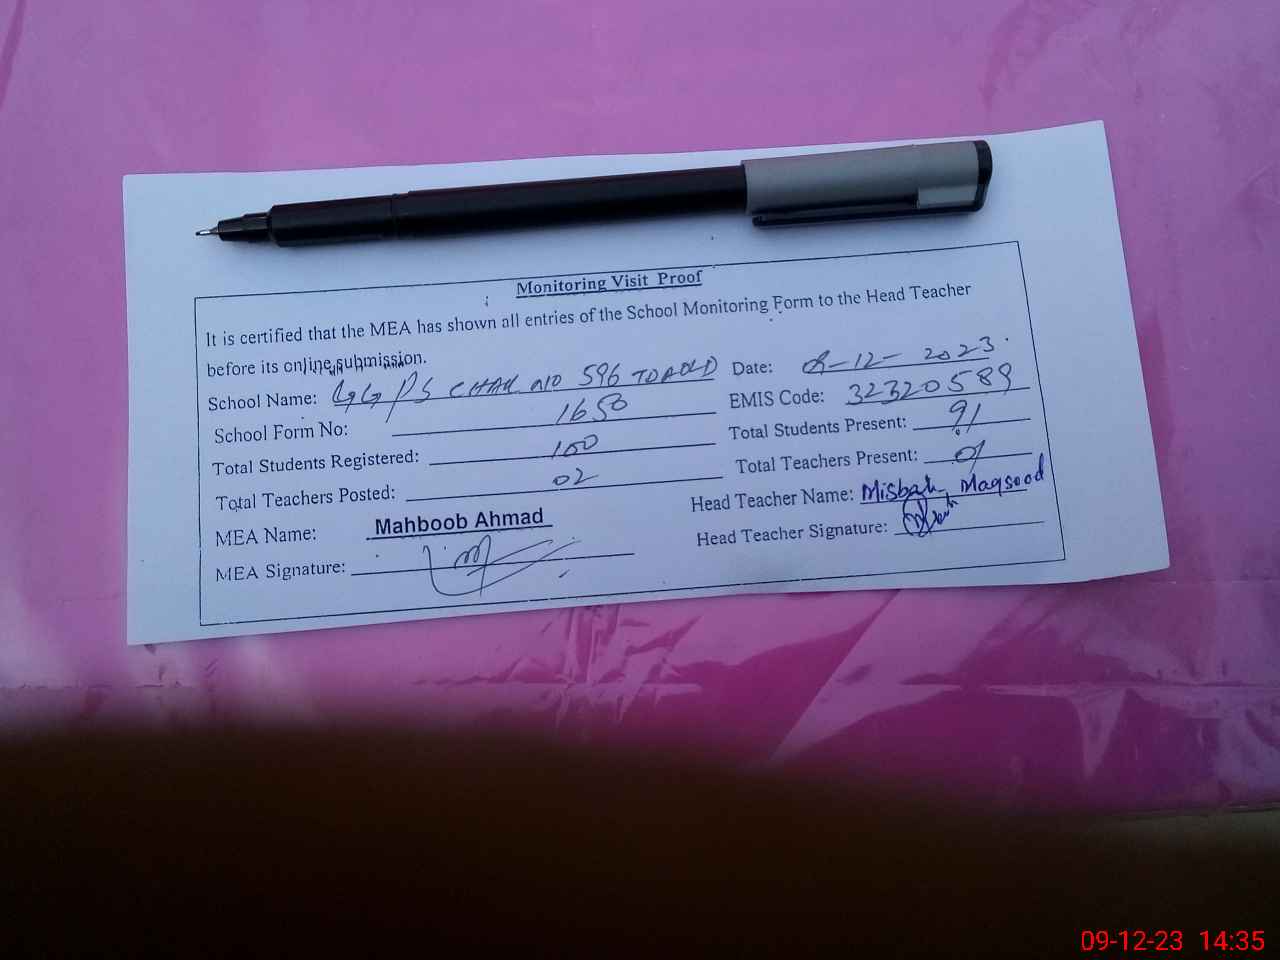 Monitoring Visit Proof
It is certified that the MEA has shown all entries of the School Monitoring Form to the Head Teacher
before its online submission.
School Name: GGPS CHAK NO 596 TDA OLD Date: 8-12-2023
School Form No: 1650 EMIS Code: 32320589
Total Students Registered: 100 Total Students Present: 91
Total Teachers Posted: 02 Total Teachers Present: 01
MEA Name: Mahboob Ahmad Head Teacher Name: Misbah Maqsood
MEA Signature: Head Teacher Signature:
09-12-23 14:35